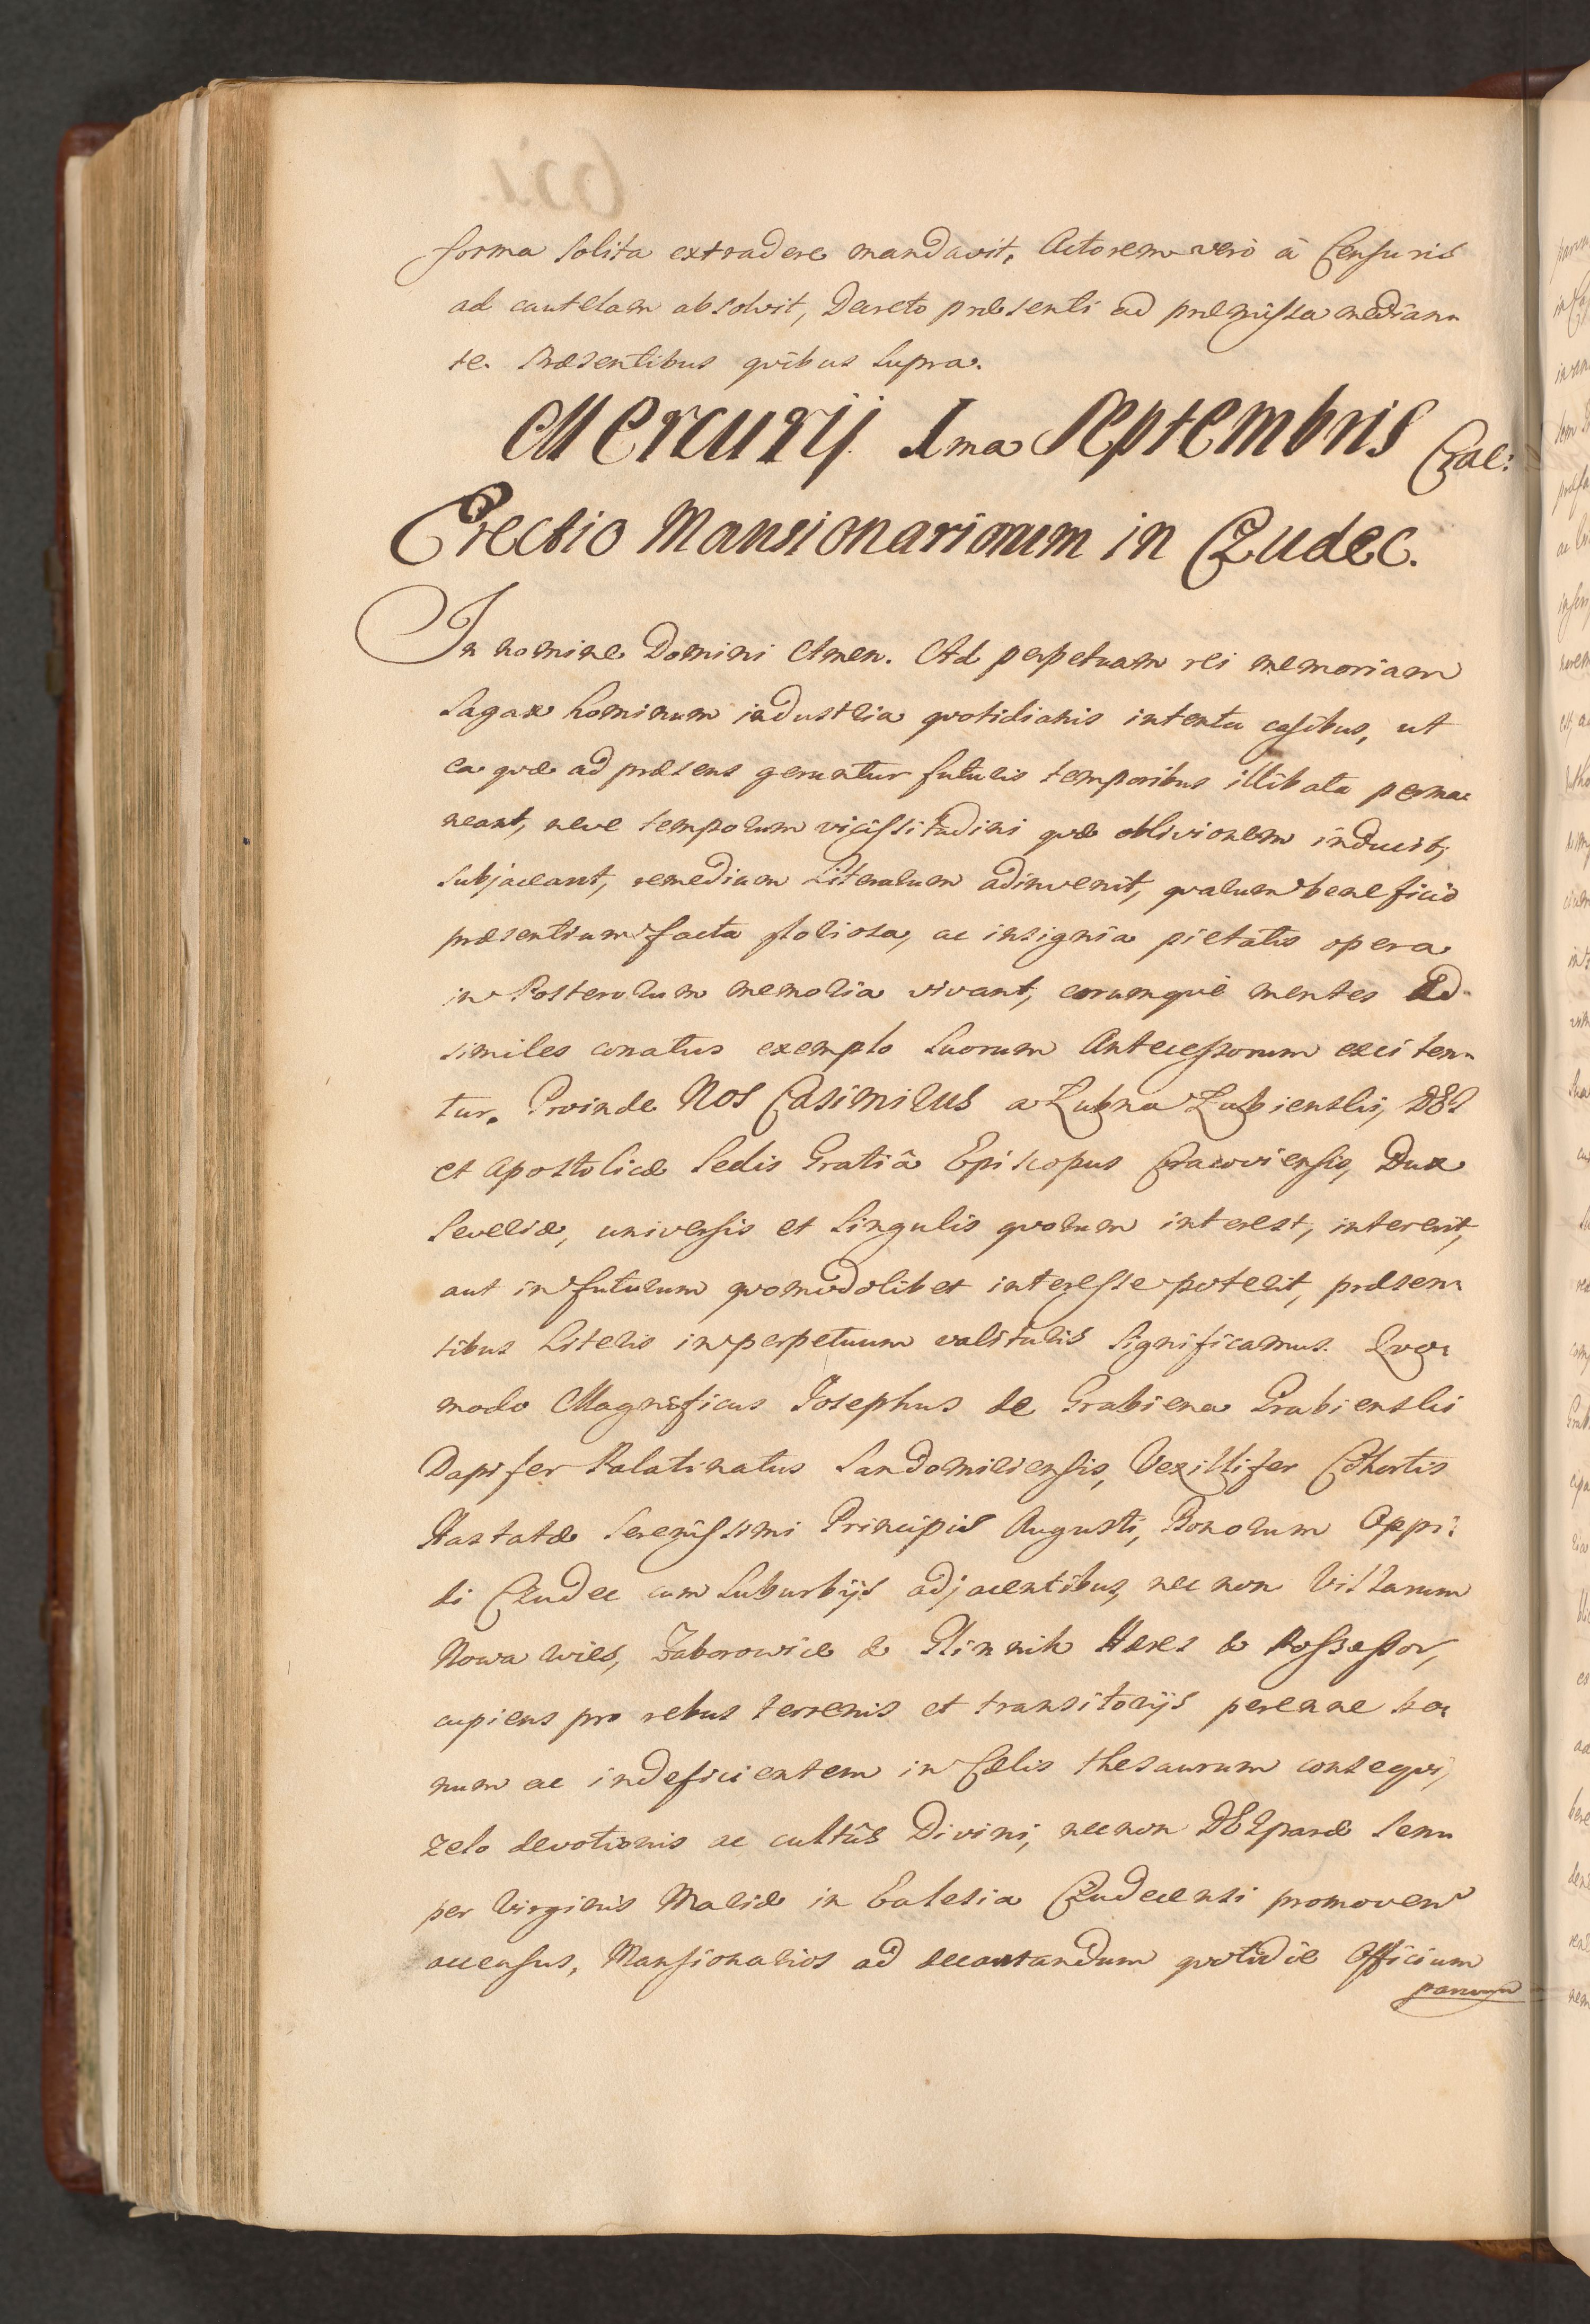 forma solita extradere mandavit, Actorem verò à Censuris
ad cautelam absolvit, Decreto præsenti ad præmissa median=
te. Præsentibus quibus supra.
Mercurij 1ma Septembris Crac:
Erectio Mansionariorum in Czudec.
In nomine Domini Amen. Ad perpetuam rei memoriam
Sagax hominum industria quotidianis intenta casibus, ut
ea quæ ad præsens geruntur futuris temporibus illibata perma=
neant, neve temporum vicissitudini quæ oblivionem inducit,
subjaceant, remedium Literarum adinvenit, quarum beneficio
præsentium facta gloriosa, ac insignia pietatis opera
in Posterorum memoria vivant, eorumque mentes ad
similes conatus exemplo suorum Antecessorum exciten=
tur. Proinde Nos Casimirus a Lubna Lubienski, DEI
et Apostolicæ Sedis Gratiâ Episcopus Cracoviensis, Dux
Severiæ, universis et singulis quorum interest, intererit,
aut in futurum quomodolibet interesse poterit, præsen=
tibus Literis in perpetuum valituris significamus. Quo=
modo Magnificus Josephus de Grabiena Grabienski
Dapifer Palatinatus Sandomiriensis, Vexillifer Cohortis
Hastatæ Serenissimi Principis Augusti, Bonorum Oppi=
di Czudec cum suburbijs adjacentibus, nec non Villarum
Nowa wies, Zaborowice & Glinnik Hæres & Possessor,
cupiens pro rebus terrenis et transitorijs perenne bo=
num ac indeficientem in Cælis thesaurum consequi,
zelo devotionis ac cultûs Divini, nec non DEIparæ Sem=
per Virginis Mariæ in Eclesia Czudecensi promoven
accensus, Mansionarios ad decantandum quotidie Officium
parvum